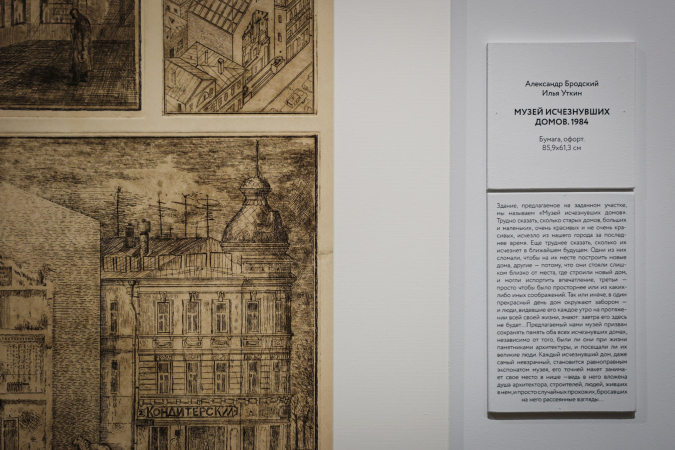 КОНДИТЕРСКАЯ
Александр Бродский
Илья Уткин
МУЗЕЙ ИСЧЕЗНУВШИХ
ДОМОВ. 1984
Бумага, офорт.
85,9х61,3 см
Здание, предлагаемое на заданном участке,
мы называем «Музей исчезнувших домов».
Трудно сказать, сколько старых домов, больших
и маленьких, очень красивых и не очень кра-
сивых, исчезло из нашего города за послед-
нее время. Еще труднее сказать, сколько их
исчезнет в ближайшем будущем. Одни из них
сломали, чтобы на их месте построить новые
дома, другие — потому, что они стояли слиш-
ком близко от места, где строили новый дом,
и могли испортить впечатление, третьи —
просто чтобы было просторнее или из каких-
либо иных соображений. Так или иначе, в один
прекрасный день дом окружают забором —
и люди, видевшие его каждое утро на протяже-
нии всей своей жизни, знают: завтра его здесь
не будет...Предлагаемый нами музей призван
сохранять память обо всех исчезнувших домах,
независимо от того, были ли они при жизни
памятниками архитектуры, и посещали ли их
великие люди. Каждый исчезнувший дом, даже
самый невзрачный, становится равноправным
экспонатом музея, его точней макет занима-
ет свое место в нише —ведь в него вложена
душа архитектора, строителей, людей, живших
в нем, и просто случайных прохожих, бросавших
на него рассеянные взгляды...